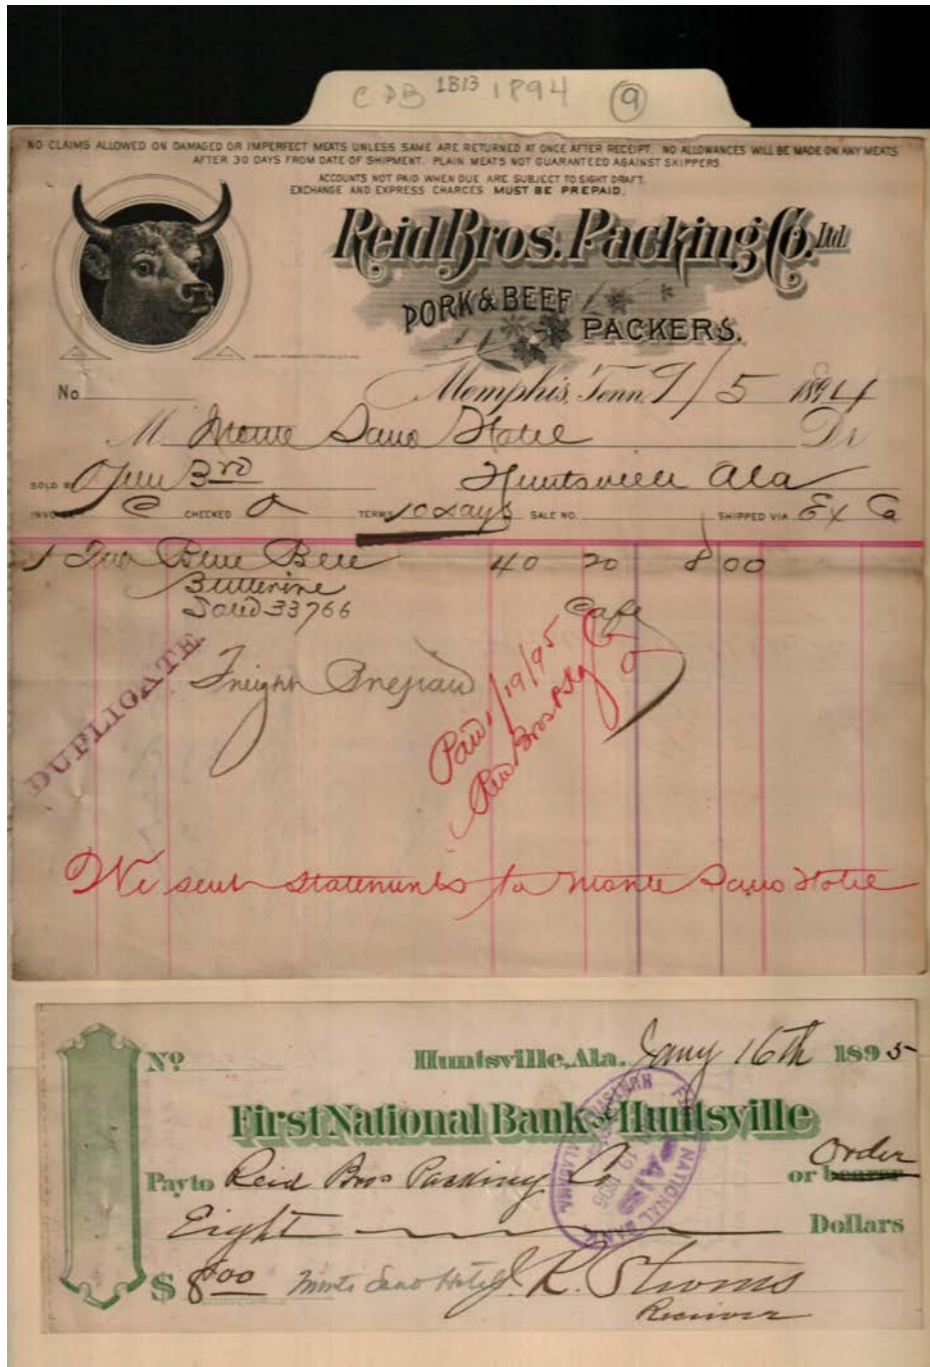 CDB 1B13 1894 9
NO CLAIMS ALLOWED ON DAMAGED OR IMPERFECT MEATS UNLESS SAME ARE RETURNED AT ONCE AFTER RECEIPT. NO ALLOWANCES WILL BE MADE ON ANY MEATS
AFTER 30 DAYS FROM DATE OF SHIPMENT. PLAIN MEATS NOT GUARANTEED AGAINST SKIPPERS.
ACCOUNTS NOT PAID WHEN DUE ARE SUBJECT TO SIGHT DRAFT.
EXCHANGE AND EXPRESS CHARGES MUST BE PREPAID.
Reid Bros. Packing Co. Ltd.
PORK & BEEF
PACKERS.
No Memphis, Tenn. 9/5 1894
M Monte Sano Hotel Dr
SOLD BY Open 3rd Huntsville Ala
INVOICE C CHECKED TERMS 10 days SALE NO. SHIPPED VIA Ex Co
1 Blue Bell 40 20 8 00
Butterine
33766
Freight Prepaid
DUPLICATE
Paid 1/19/95
Reid Bros Pkg Co
We sent statements to Monte Sano Hotel
No Huntsville, Ala. Jany 16th 1895
First National Bank of Huntsville
Pay to Reid Bros Packing Co or bearer Order
Eight Dollars
$ 8.00 Monte Sano Hotel J. K. Stroms
Receiver
FIRST NATIONAL BANK
HUNTSVILLE
ALABAMA
PAID